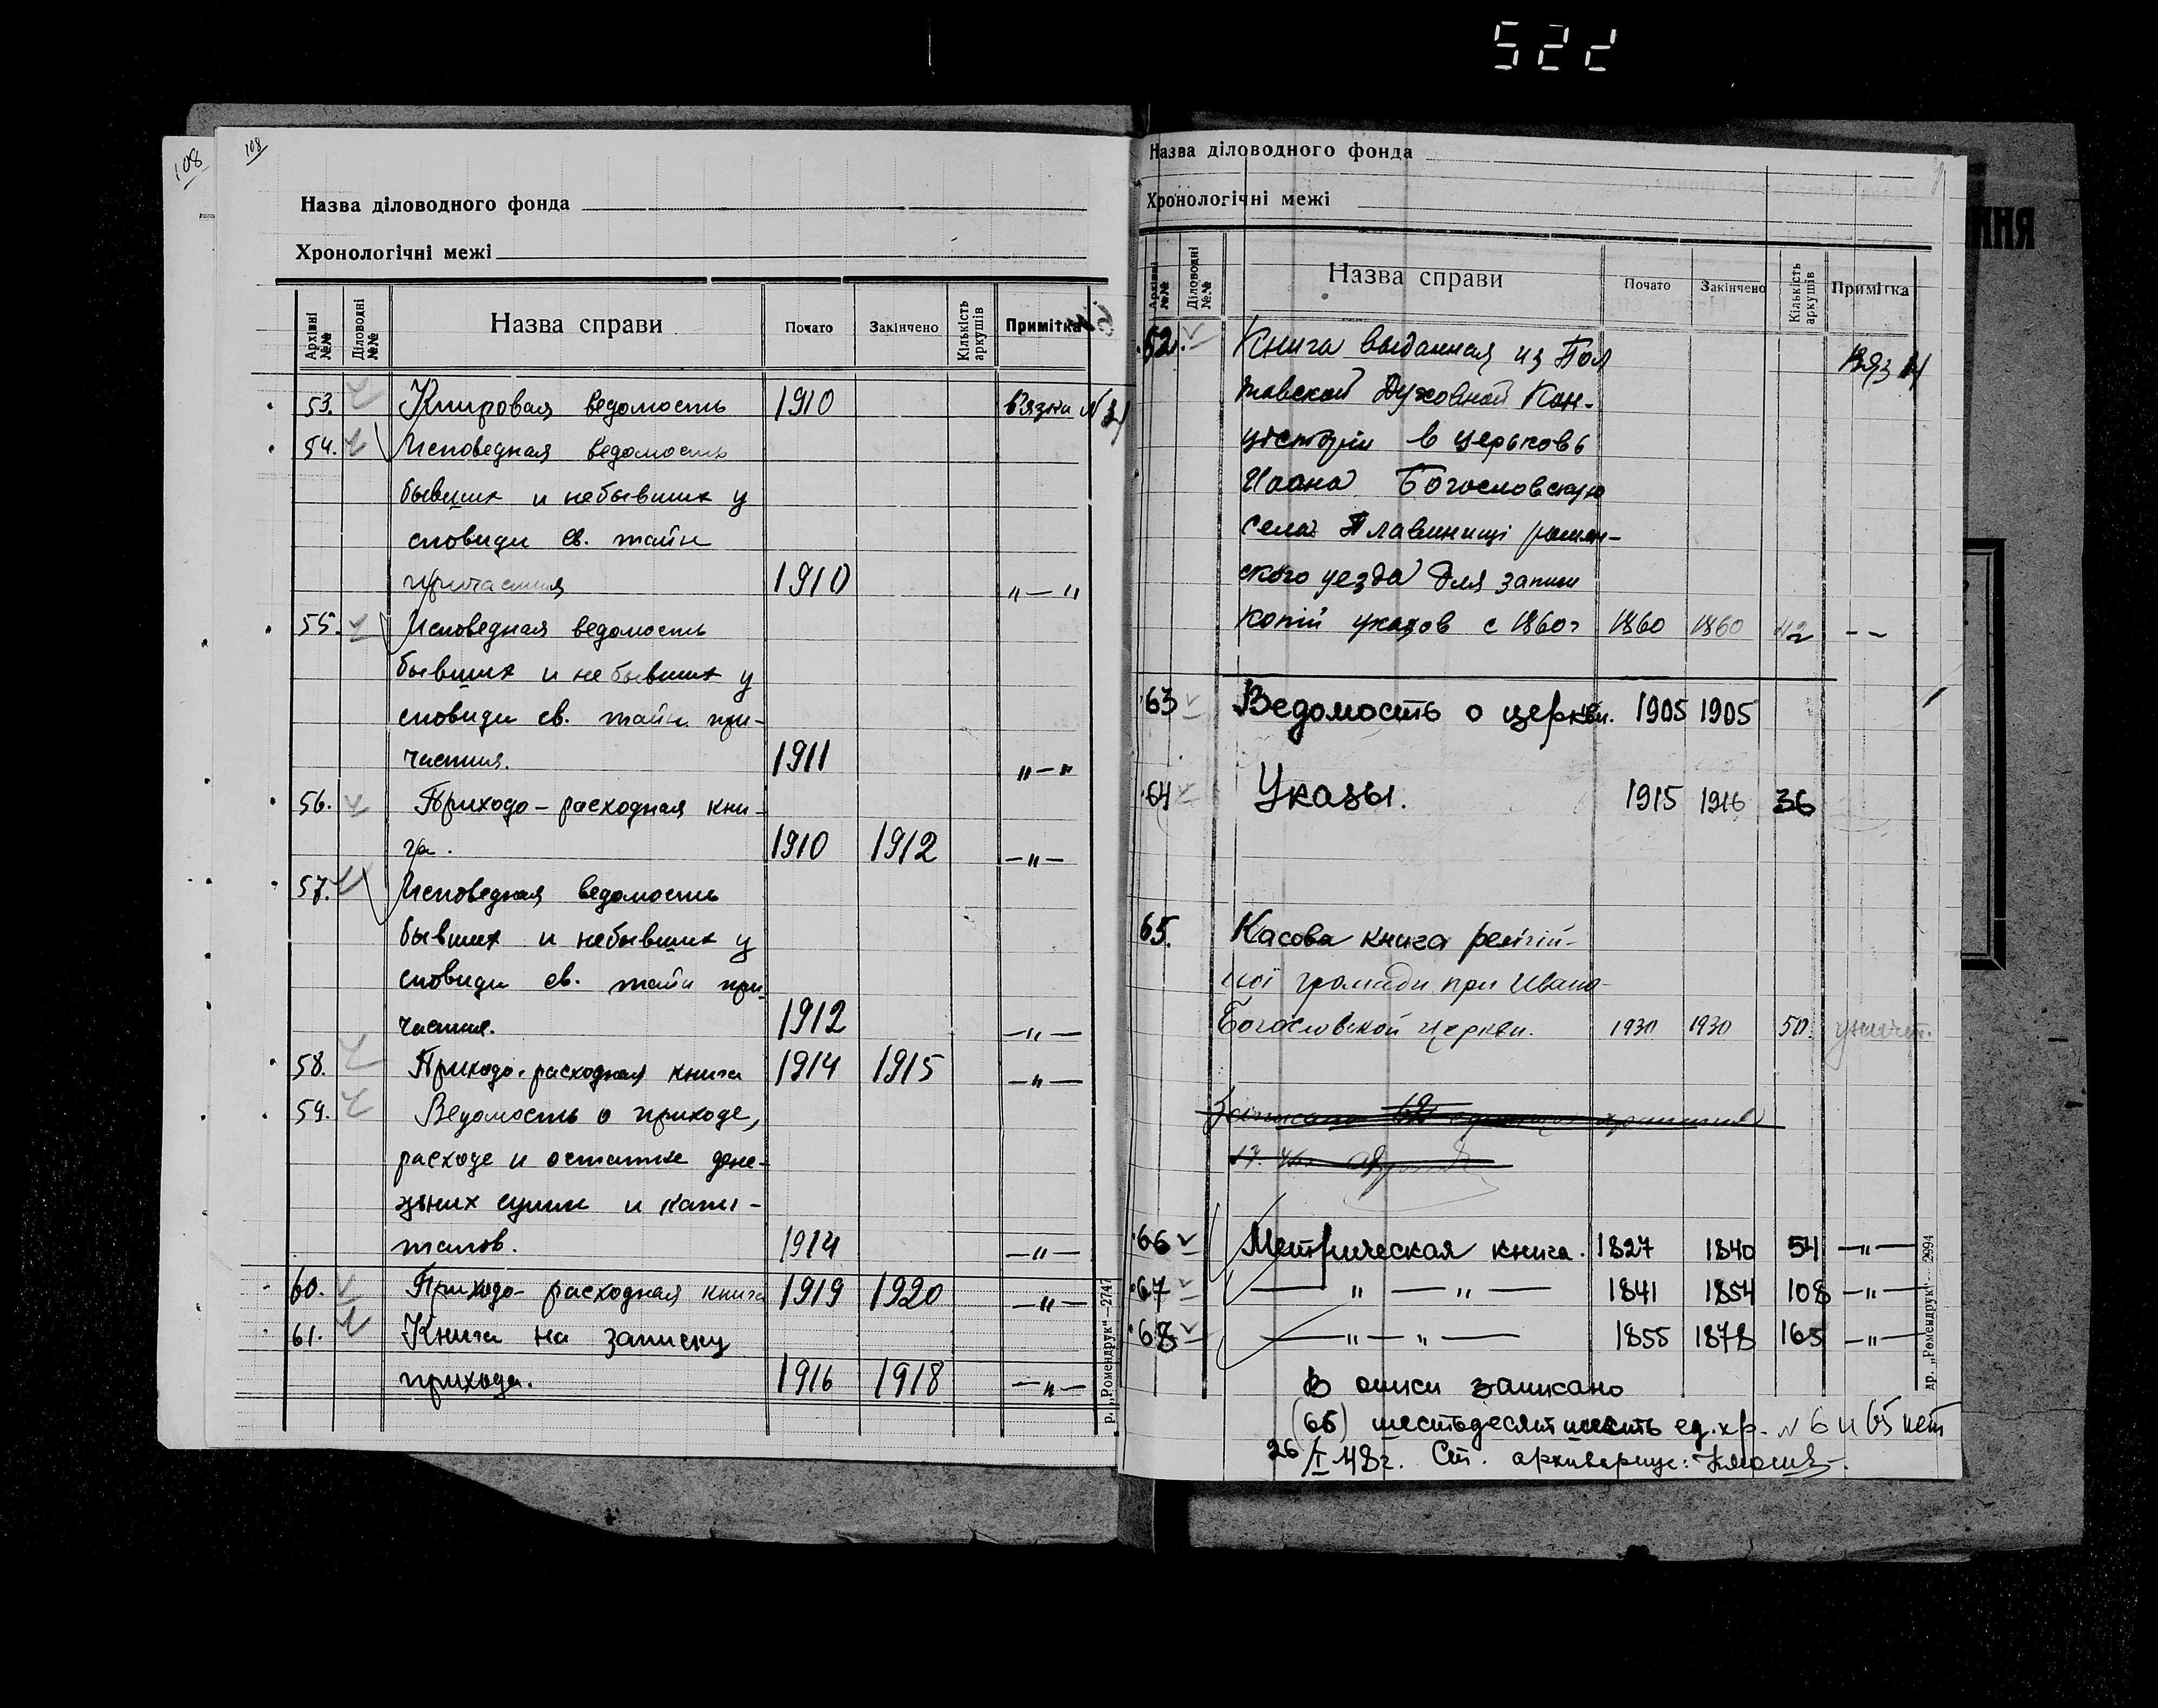 522
108
108
Назва діловодного фонда
Хронологічні межі
Архівні №№ Діловодні №№ Назва справи Почато Закінчено Кількість аркушів Примітка
53. Клировая ведомость 1910 в'язка N
54. Исповедная ведомость
бывших и небывших у
сповиди св. тайн
причастия 1910 „ — „
55. Исповедная ведомость
бывших и небывших у
сповиди св. тайн при-
частия. 1911 „ — „
56. Приходо-расходная кни-
га. 1910 1912 — „ —
57. Исповедная ведомость
бывших и небывших у
сповиди св. тайн при-
частия. 1912 — „ —
58. Приходо-расходная книга 1914 1915 — „ —
59. Ведомость о приходе,
расходе и остатке дене-
жних сумм и капи-
талов. 1914 — „ —
60. Приходо-расходная книга 1919 1920 — „ —
61. Книга на записку
прихода. 1916 1918 — „ —
р. „Ромендрук“—2747
Назва діловодного фонда
Хронологічні межі
Архівні №№ Діловодні №№ Назва справи Почато Закінчено Кількість аркушів Примітка
62. Книга выданная из Пол
тавской Духовной Кон-
цісторіи в церьковь
Иоана Богословскую
села Плавинищі ромен-
ского уезда для записи
копій указов с 1860г 1860 1860 42 — —
63 Ведомость о церкви. 1905 1905
64 Указы. 1915 1916 36
65. Касова книга релігій-
ної громади при Ивано-
Богословской церкви. 1930 1930 50.
66 Метрическая книга. 1827 1840 54 — „ —
67 — „ — „ — 1841 1854 108 — „ —
68 — „ — „ — 1855 1878 165 — „ —
др. „Ромендрук“—2994
В описи записано
(66) шестьдесят шесть ед. хр. N 6 и 65 нет
26/I 48г. Ст. архивариус: